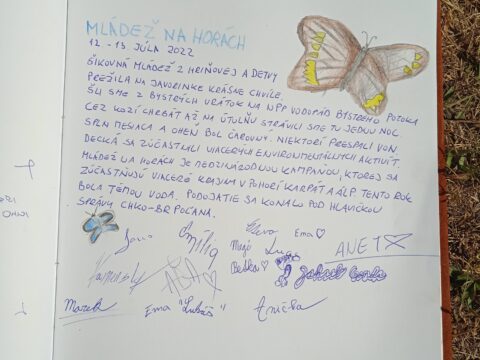 MLÁDEŽ NA HORÁCH
12 - 13. JÚLA 2022
ŠIKOVNÁ MLÁDEŽ Z HRIŇOVEJ A DETVY
PREŽILA NA JAVORINKE KRÁSNE CHVÍLE.
ŠLI SME Z BYSTRÝCH VRÁTOK NA NPP VODOPÁD BYSTRÉHO POTOKA
CEZ KOZÍ CHRBÁT AŽ NA ÚTULŇU STRÁVILI SME TU JEDNU NOC.
SPLN MESIACA A OHEŇ BOL ČAROVNÝ. NIEKTORÍ PRESPALI VON
DECKÁ SA ZÚČASTNILI VIACERÝCH ENVIRONMENTÁLNYCH AKTIVÍT.
MLÁDEŽ NA HORÁCH JE MEDZINÁRODNOU KAMPAŇOU, KTOREJ SA
ZÚČASTŇUJÚ VIACERÉ KRAJINY V POHORÍ KARPÁT A ÁLP. TENTO ROK
BOLA TÉMOU VODA. PODUJATIE SA KONALO POD HLAVIČKOU
SPRÁVY CHKO-BR POĽANA.
Jana Emília Ema ♡
ANET
Betka ♡ Jakub
Marek Ema "Lukáš" Anička